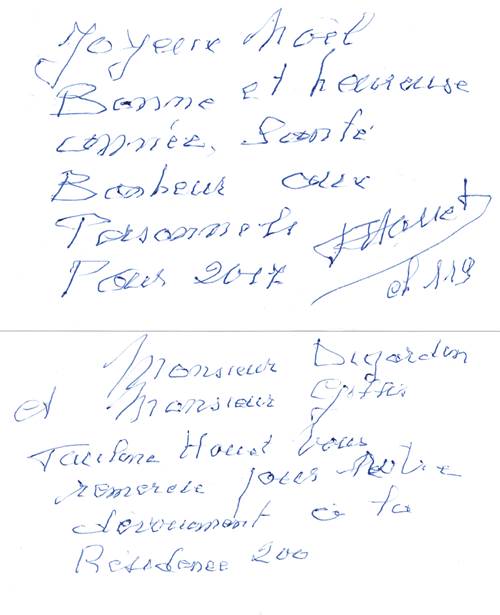 Joyeux Noël
Bonne et heureuse
année, Santé
Bonheur aux
Personnels
Pour 2017
ch 119
Monsieur Dujardin
et Monsieur
Houet Vous
remercie pour Votre
dévouement à la
Résidence 200